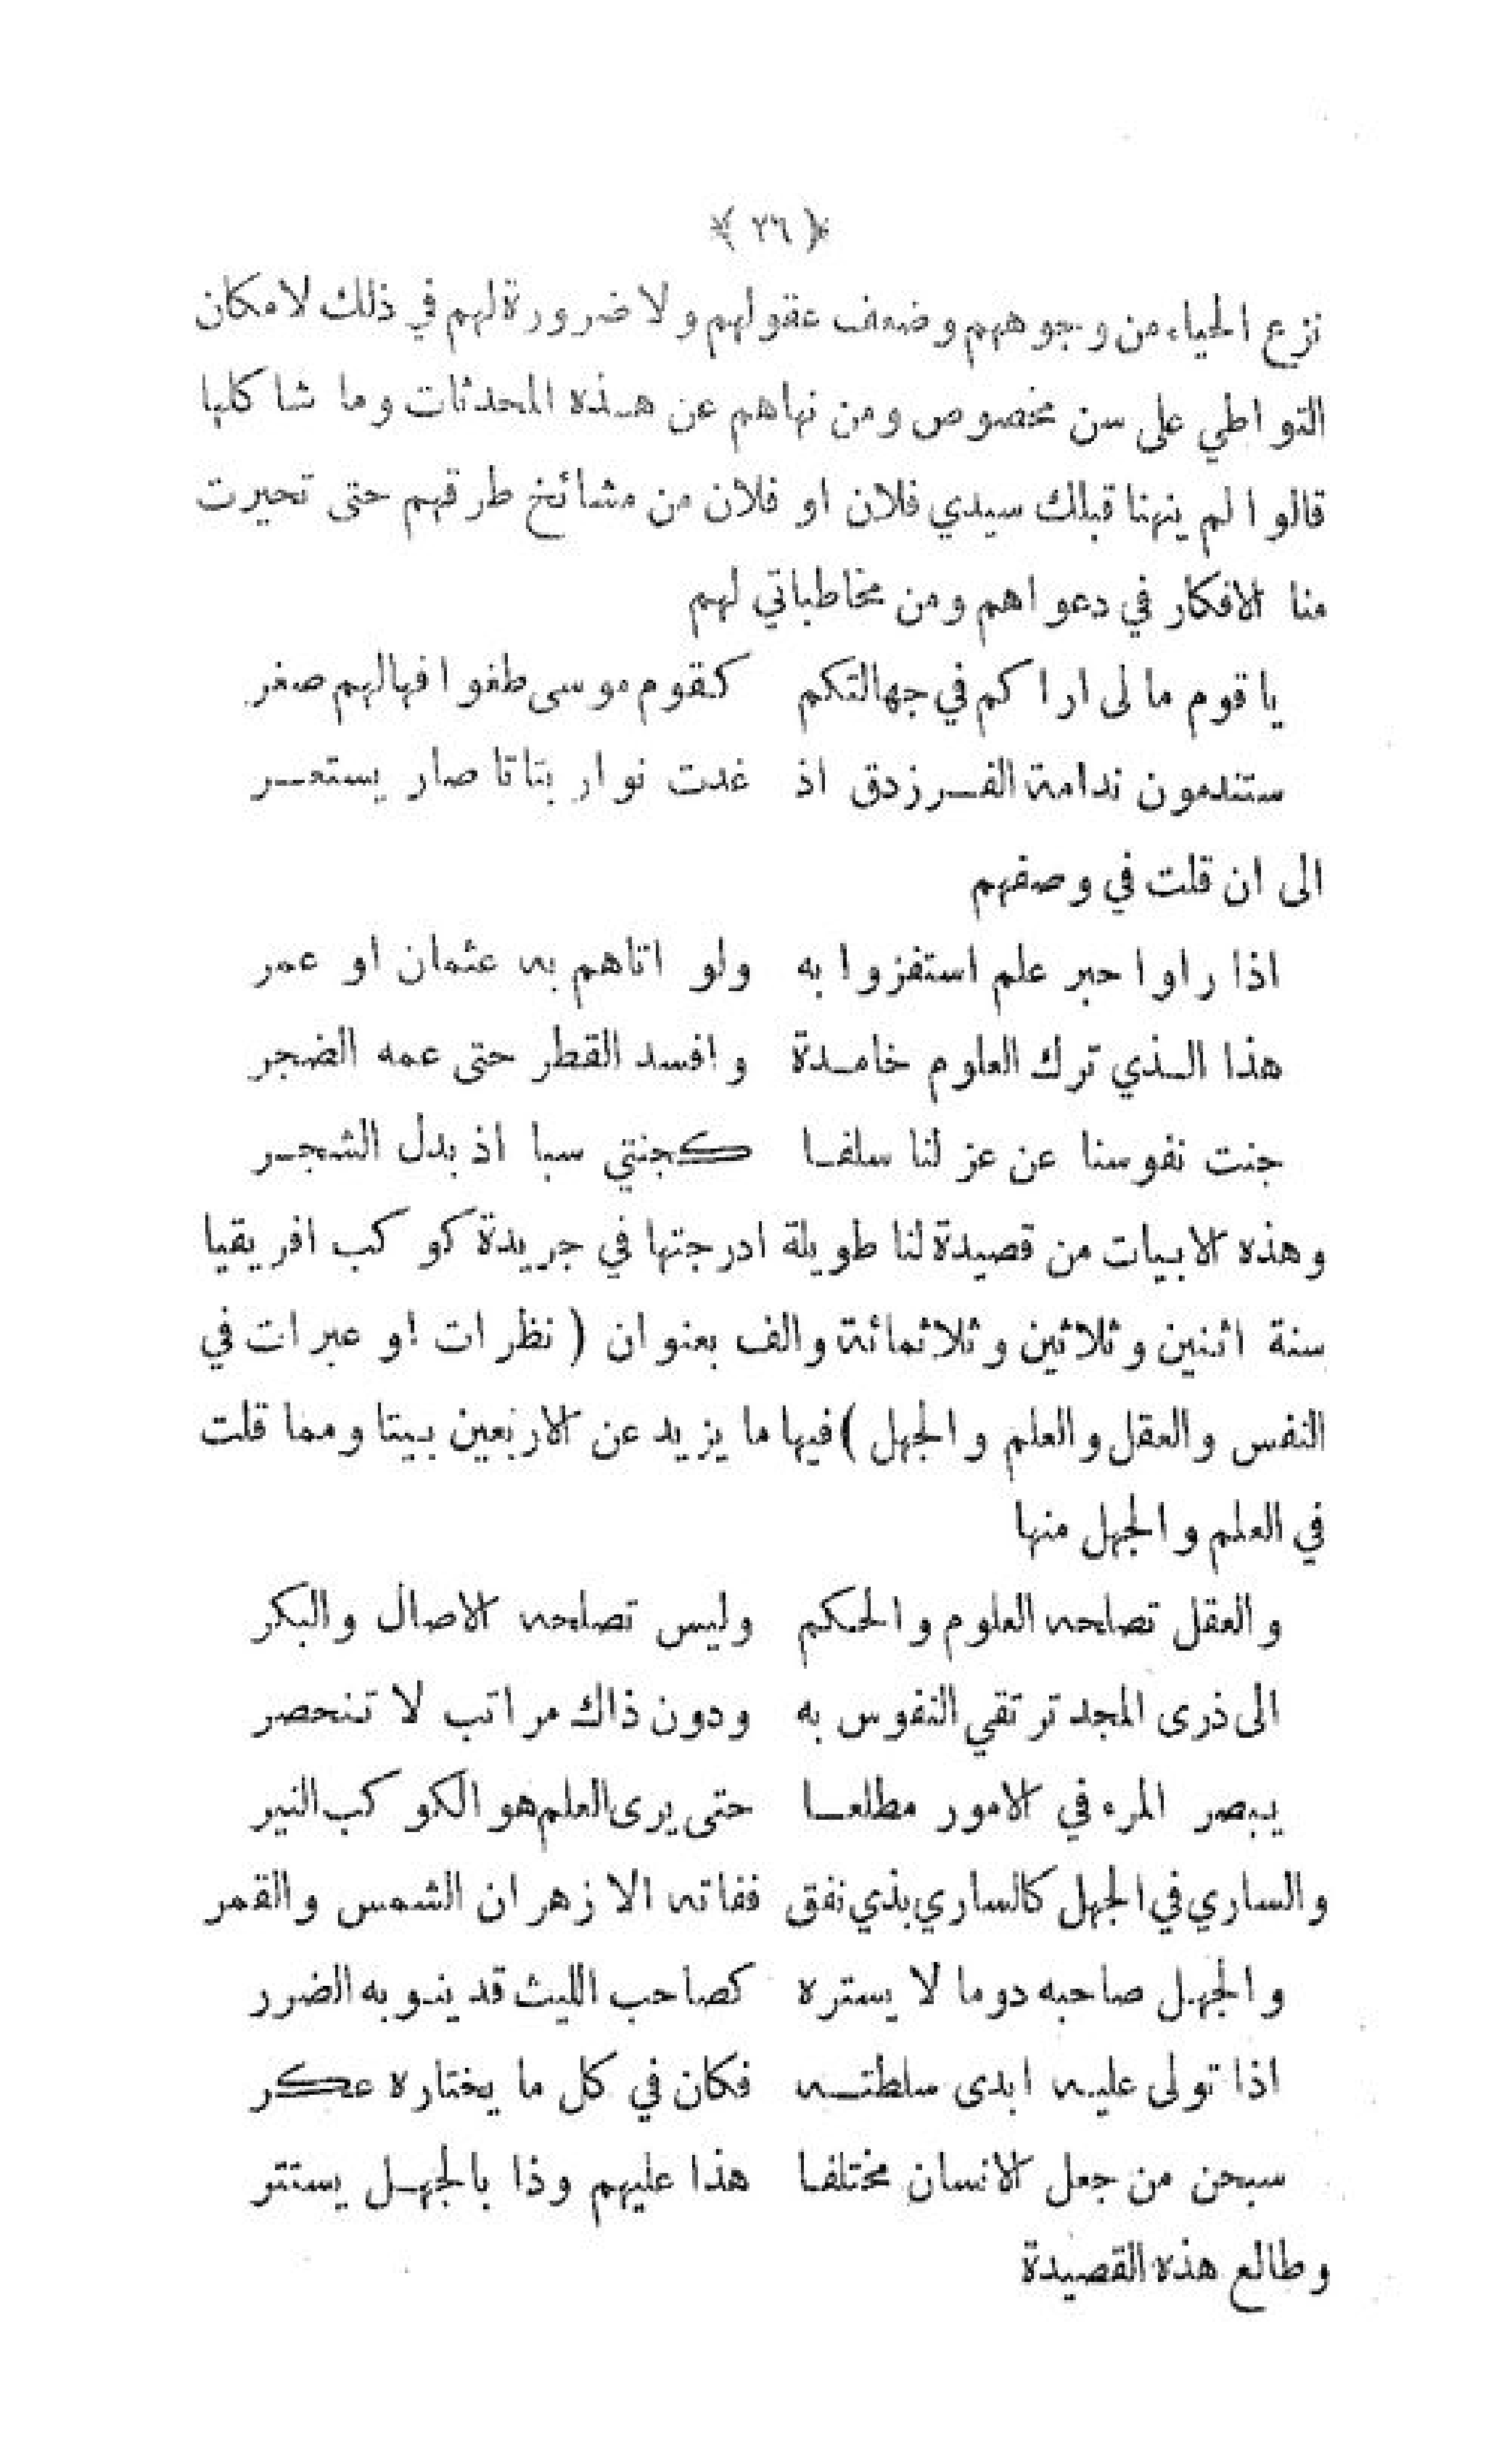 ﴿ ٣٦ ﴾
نزع الحياء من وجوههم وضعف عقولهم ولا ضرورة لهم في ذلك لامكان
التواطي على سن مخصوص ومن نهاهم عن هذه المحدثات وما شاكلها
قالوا لم ينهنا قبلك سيدي فلان او فلان من مشائخ طرقهم حتى تحيرت
منا الافكار في دعواهم ومن مخاطباتي لهم
يا قوم ما لى اراكم في جهالتكم كقوم موسى طغوا فهالهم صغر
ستندمون ندامة الفرزدق اذ غدت نوار بتاتا صار يستعر
الى ان قلت في وصفهم
اذا راوا حبر علم استفزوا به ولو اتاهم به عثمان او عمر
هذا الذي ترك العلوم خامدة وافسد القطر حتى عمه الضجر
جنت نفوسنا عن عز لنا سلفا كجنتي سبا اذ بدل الشجر
وهذه الابيات من قصيدة لنا طويلة ادرجتها في جريدة كوكب افريقيا
سنة اثنين وثلاثين وثلاثمائة والف بعنوان ( نظرات او عبرات في
النفس والعقل والعلم والجهل ) فيها ما يزيد عن الاربعين بيتا ومما قلت
في العلم والجهل منها
والعقل تصلحه العلوم والحكم وليس تصلحه الاصال والبكر
الى ذرى المجد ترتقي النفوس به ودون ذاك مراتب لا تنحصر
يبصر المرء في الامور مطلعا حتى يرى العلم هو الكوكب النير
والساري في الجهل كالساري بذي نفق ففاته الازهران الشمس والقمر
والجهل صاحبه دوما لا يستره كصاحب الليث قد ينوبه الضرر
اذا تولى عليه ابدى سلطته فكان في كل ما يختاره عكر
سبحن من جعل الانسان مختلفا هذا عليهم وذا بالجهل يستتر
وطالع هذه القصيدة